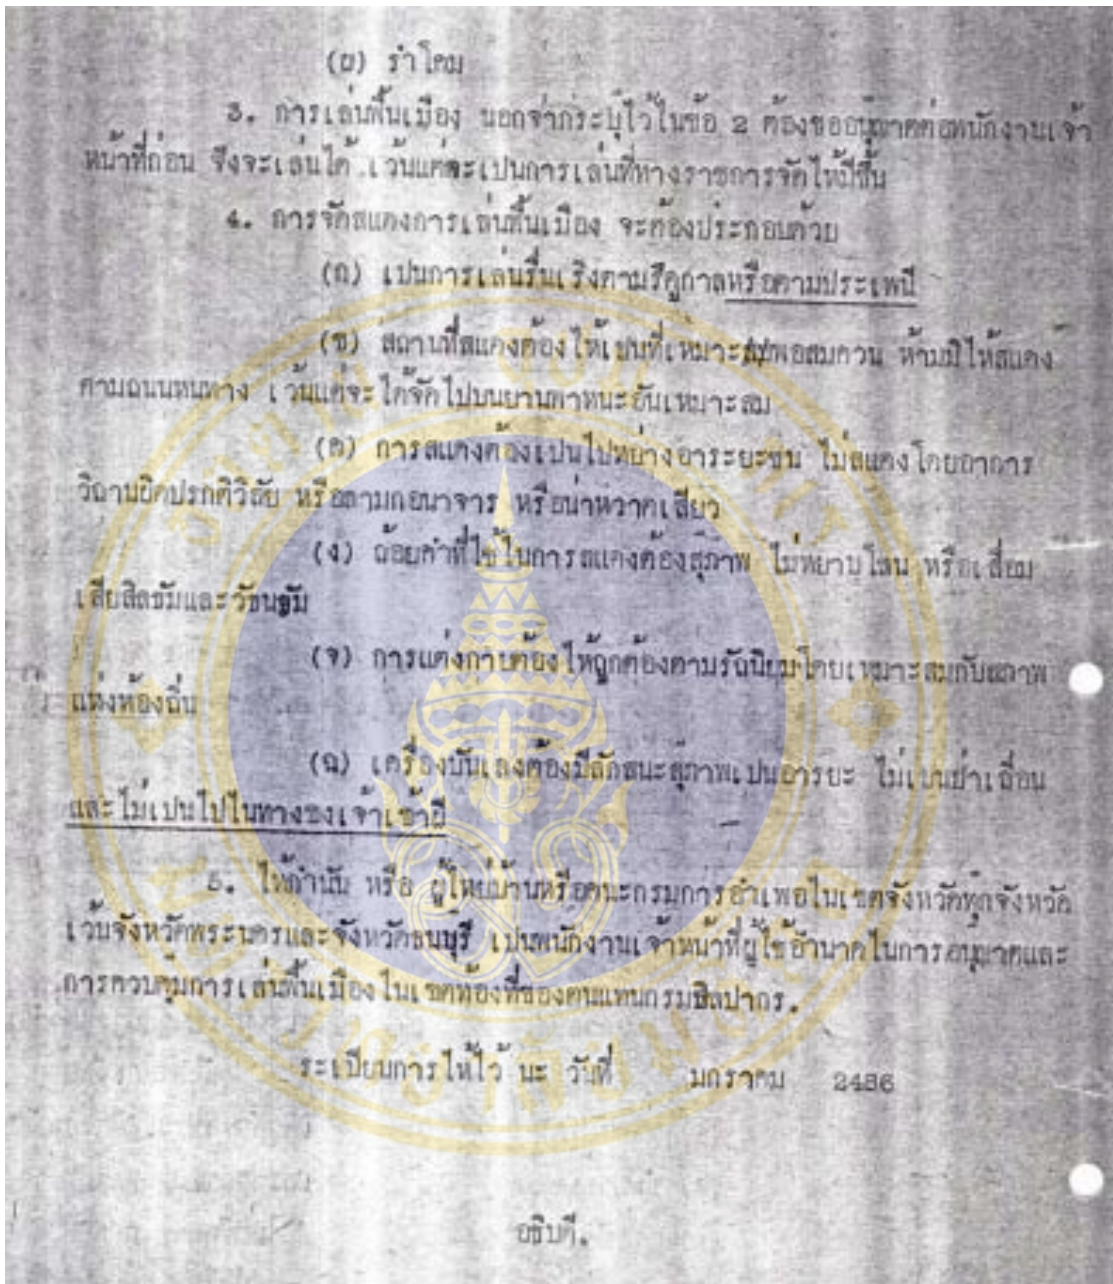 (ผ) รำโคม
3. การเล่นพื้นเมือง นอกจากระบุไว้ในข้อ 2 ต้องขออนุญาตต่อพนักงานเจ้า
หน้าที่ก่อน จึงจะเล่นได้ เว้นแต่จะเปนการเล่นที่ทางราชการจัดให้มีขึ้น
4. การจัดสแดงการเล่นพื้นเมือง จะต้องประกอบด้วย
(ก) เปนการเล่นรื่นเริงตามรึดูกาลหรือตามประเพนี
(ข) สถานที่สแดงต้องให้เปนที่เหมาะพอสมควน ห้ามมิให้สแดง
ตามถนนหนทาง เว้นแต่จะได้จัดไปบนยานพาหนะอันเหมาะสม
(ค) การสแดงต้องเปนไปหย่างอารยะชน ไม่สแดงโดยอาการ
วิถานผิดปรกติวิสัย หรือลามกอนาจาร หรือน่าหวาดเสียว
(ง) ถ้อยคำที่ไช้ไนการสแดงต้องสุภาพ ไม่หยาบโลน หรือเสื่อม
เสียสิลธัมและวัธนธัม
(จ) การแต่งกายต้องให้ถูกต้องตามรัถนิยมโดยเหมาะสมกับสภาพ
แห่งท้องถิ่น
(ฉ) เครื่องบันเลงต้องมีลักสนะสุภาพเปนอารยะ ไม่เปนป่าเถื่อน
และไม่เปนไปในทางซงเจ้าเข้าผี
5. ให้กำนัน หรือ ผู้ไหย่บ้านหรือคนะกรมการอำเพอไนเขตจังหวัดทุกจังหวัด
เว้นจังหวัดพระนครและจังหวัดธนบุรี เปนพนักงานเจ้าหน้าที่ผู้ไช้อำนาดไนการอนุญาตและ
การควบคุมการเล่นพื้นเมืองไนเขตท้องที่ของตนแทนกรมสิลปากร.
ระเบียบการไห้ไว้ นะ วันที่ มกราคม 2486
อธิบดี.